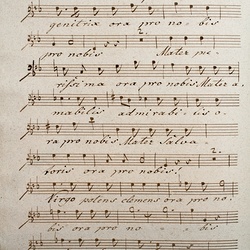 genitrix ora pro no - bis
pro nobis Mater pu -
rissima ora pro nobis Mater a.
mabilis admirabilis o.
ra pro nobis Mater Salva -
toris ora pro nobis.
Virgo potens clemens ora pro no.
bis ora pro no - - bis